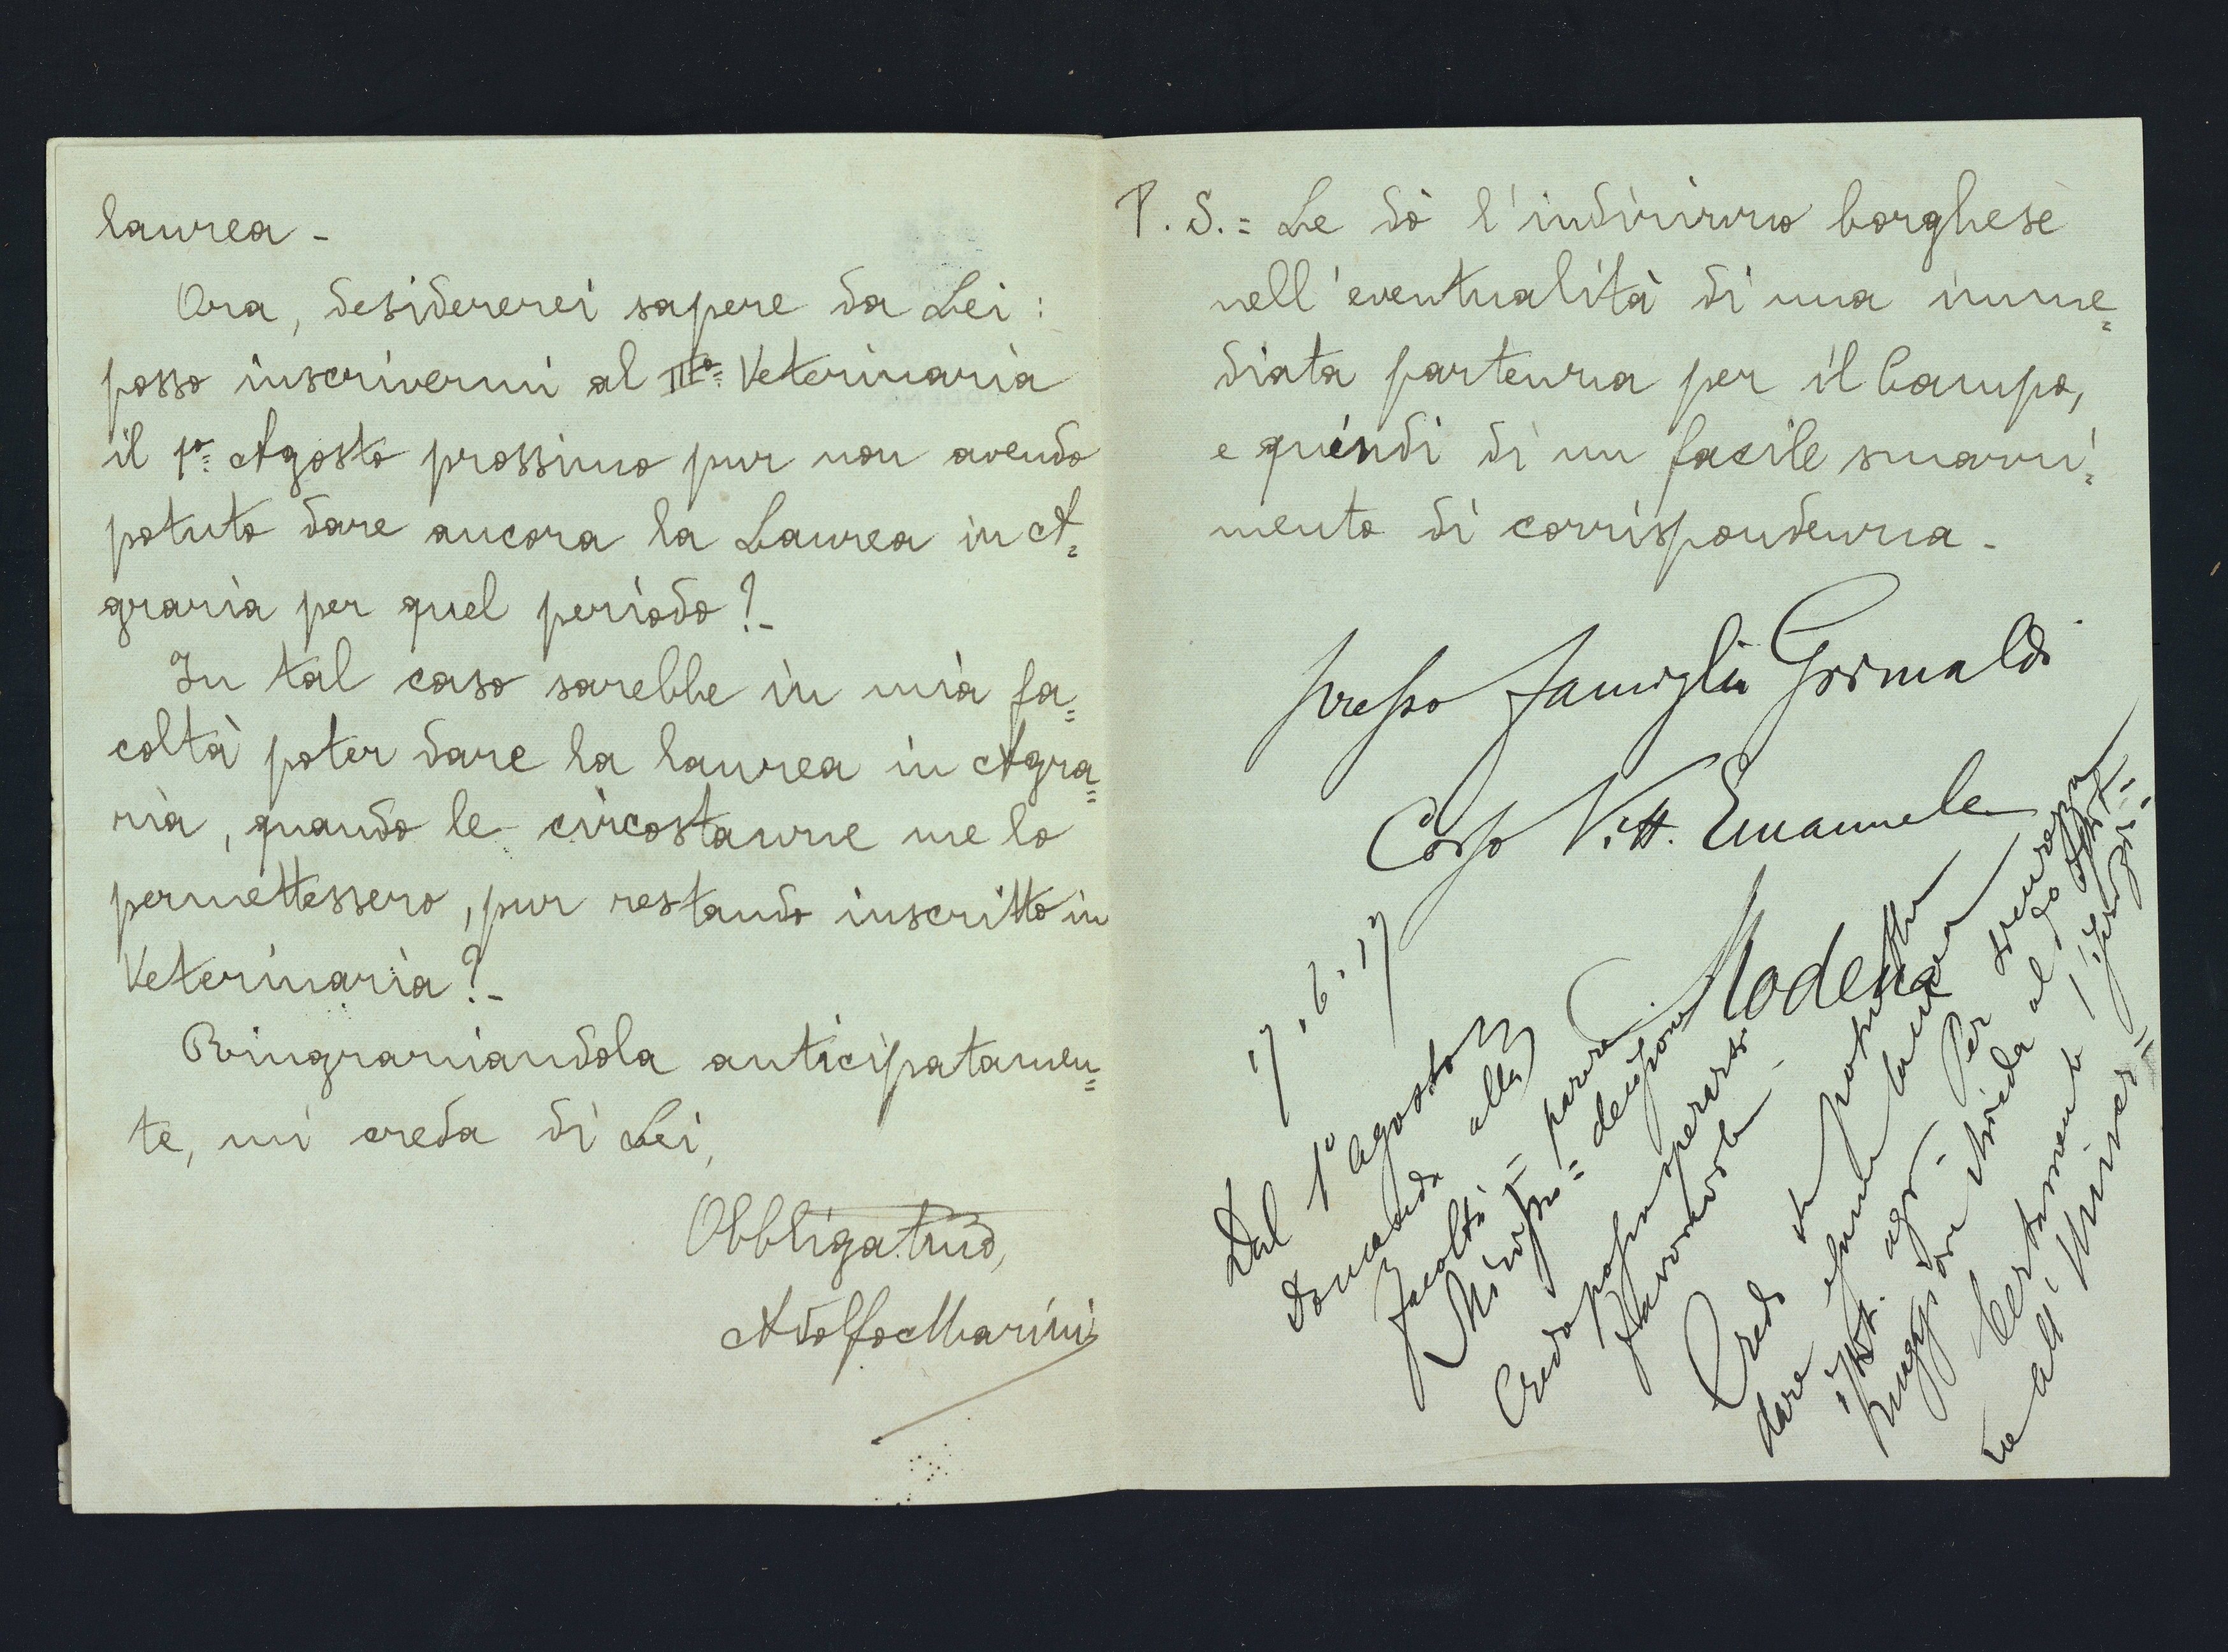 laurea -
Ora, desidererei sapere da Lei:
posso inscrivermi al III° Veterinaria
il 1° Agosto prossimo pur non avendo
potuto dare ancora la Laurea in A=
graria per quel periodo? -
In tal caso sarebbe in mia fa=
coltà poter dare la laurea in Agra=
ria, quando le circostanze me lo
permettessero, pur restando inscritto in
Veterinaria? -
Ringraziandola anticipatamen=
te, mi creda di Lei,
Obbligat.mo,
Adolfo Marini
P. S. = Le dò l'indirizzo borghese
nell'eventualità di una imme=
diata partenza per il Campo,
e quindi di un facile smarri=
mento di corrispondenza -
presso famiglia Grimaldi
Corso Vitt. Emanuele
Modena
17.6.17
Dal 1° agosto
domanda alla
facoltà = parere
decisione
Credo possa sperarsi
favorevole -
Credo si possa
dare esame laurea
ist. agr. - Per sicurezza
chieda al
Certamente